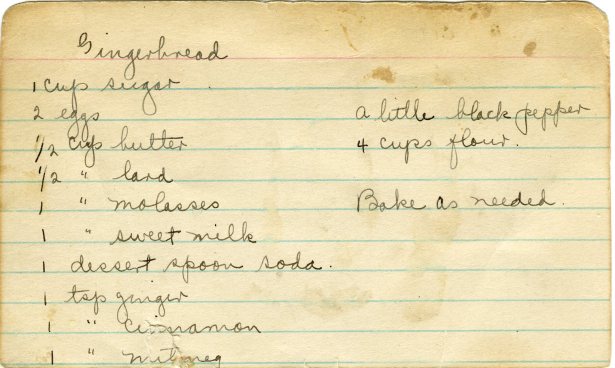 Gingerbread
1 cup sugar
2 eggs
1/2 cup butter
1/2 " lard
1 " molasses
1 " sweet milk
1 dessert spoon soda.
1 tsp ginger
1 " cinnamon
1 " nutmeg
a little black pepper
4 cups flour.
Bake as needed.